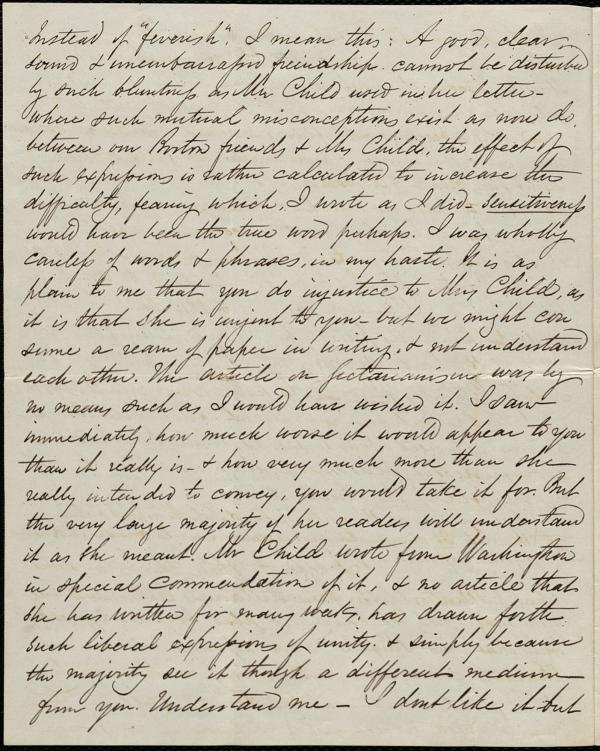 Instead of "feverish". I mean this: A good, clear,
sound & unembarrassed friendship cannot be disturbed
by such bluntness as Mrs Child used in her letter -
where such mutual misconceptions exist as now do,
between our Boston friends & Mrs Child, the effect of
such expressions is rather calculated to increase the
difficulty, fearing which, I wrote as I did - sensitiveness
would have been the true word perhaps. I was wholly
careless of words & phrases, in my haste. It is as
plain to me that you do injustice to Mrs Child, as
it is that she is unjust to you - but we might con
sume a ream of paper in writing, & not understand
each other. The article on Sectarianism was by
no means such as I would have wished it. I saw
immediately, how much worse it would appear to you
than it really is - & how very much more than she
really intended to convey, you would take it for. But
the very large majority of her readers will understand
it as she meant. Mr Child wrote from Washington
in special commendation of it, & no article that
she has written for many weeks, has drawn forth
such liberal expressions of unity. & simply because
the majority see it though a different medium
from you. Understand me - I dont like it but